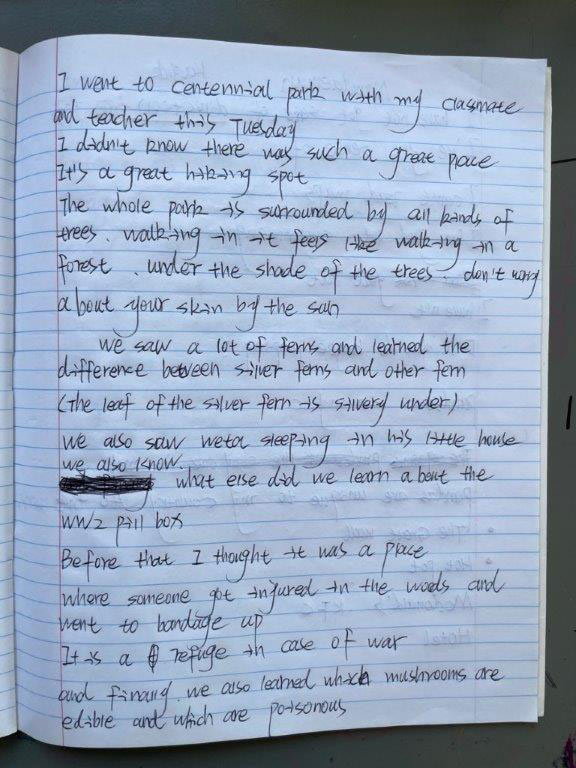 I went to centennial park with my classmate
and teacher this Tuesday
I didn't know there was such a great place
It's a great hiking spot
The whole park is surrounded by all kinds of
trees. walking in it feels like walking in a
forest. under the shade of the trees don't worry
about your skin by the sun
we saw a lot of ferns and learned the
difference between silver ferns and other fern
(The leaf of the silver fern is silvery under)
we also saw weta sleeping in his little house
we also know.
what else did we learn about the
ww2 pill box
Before that I thought it was a place
where someone got injured in the woods and
went to bandage up
It is a refuge in case of war
and finally. we also learned which mushrooms are
edible and which are poisonous